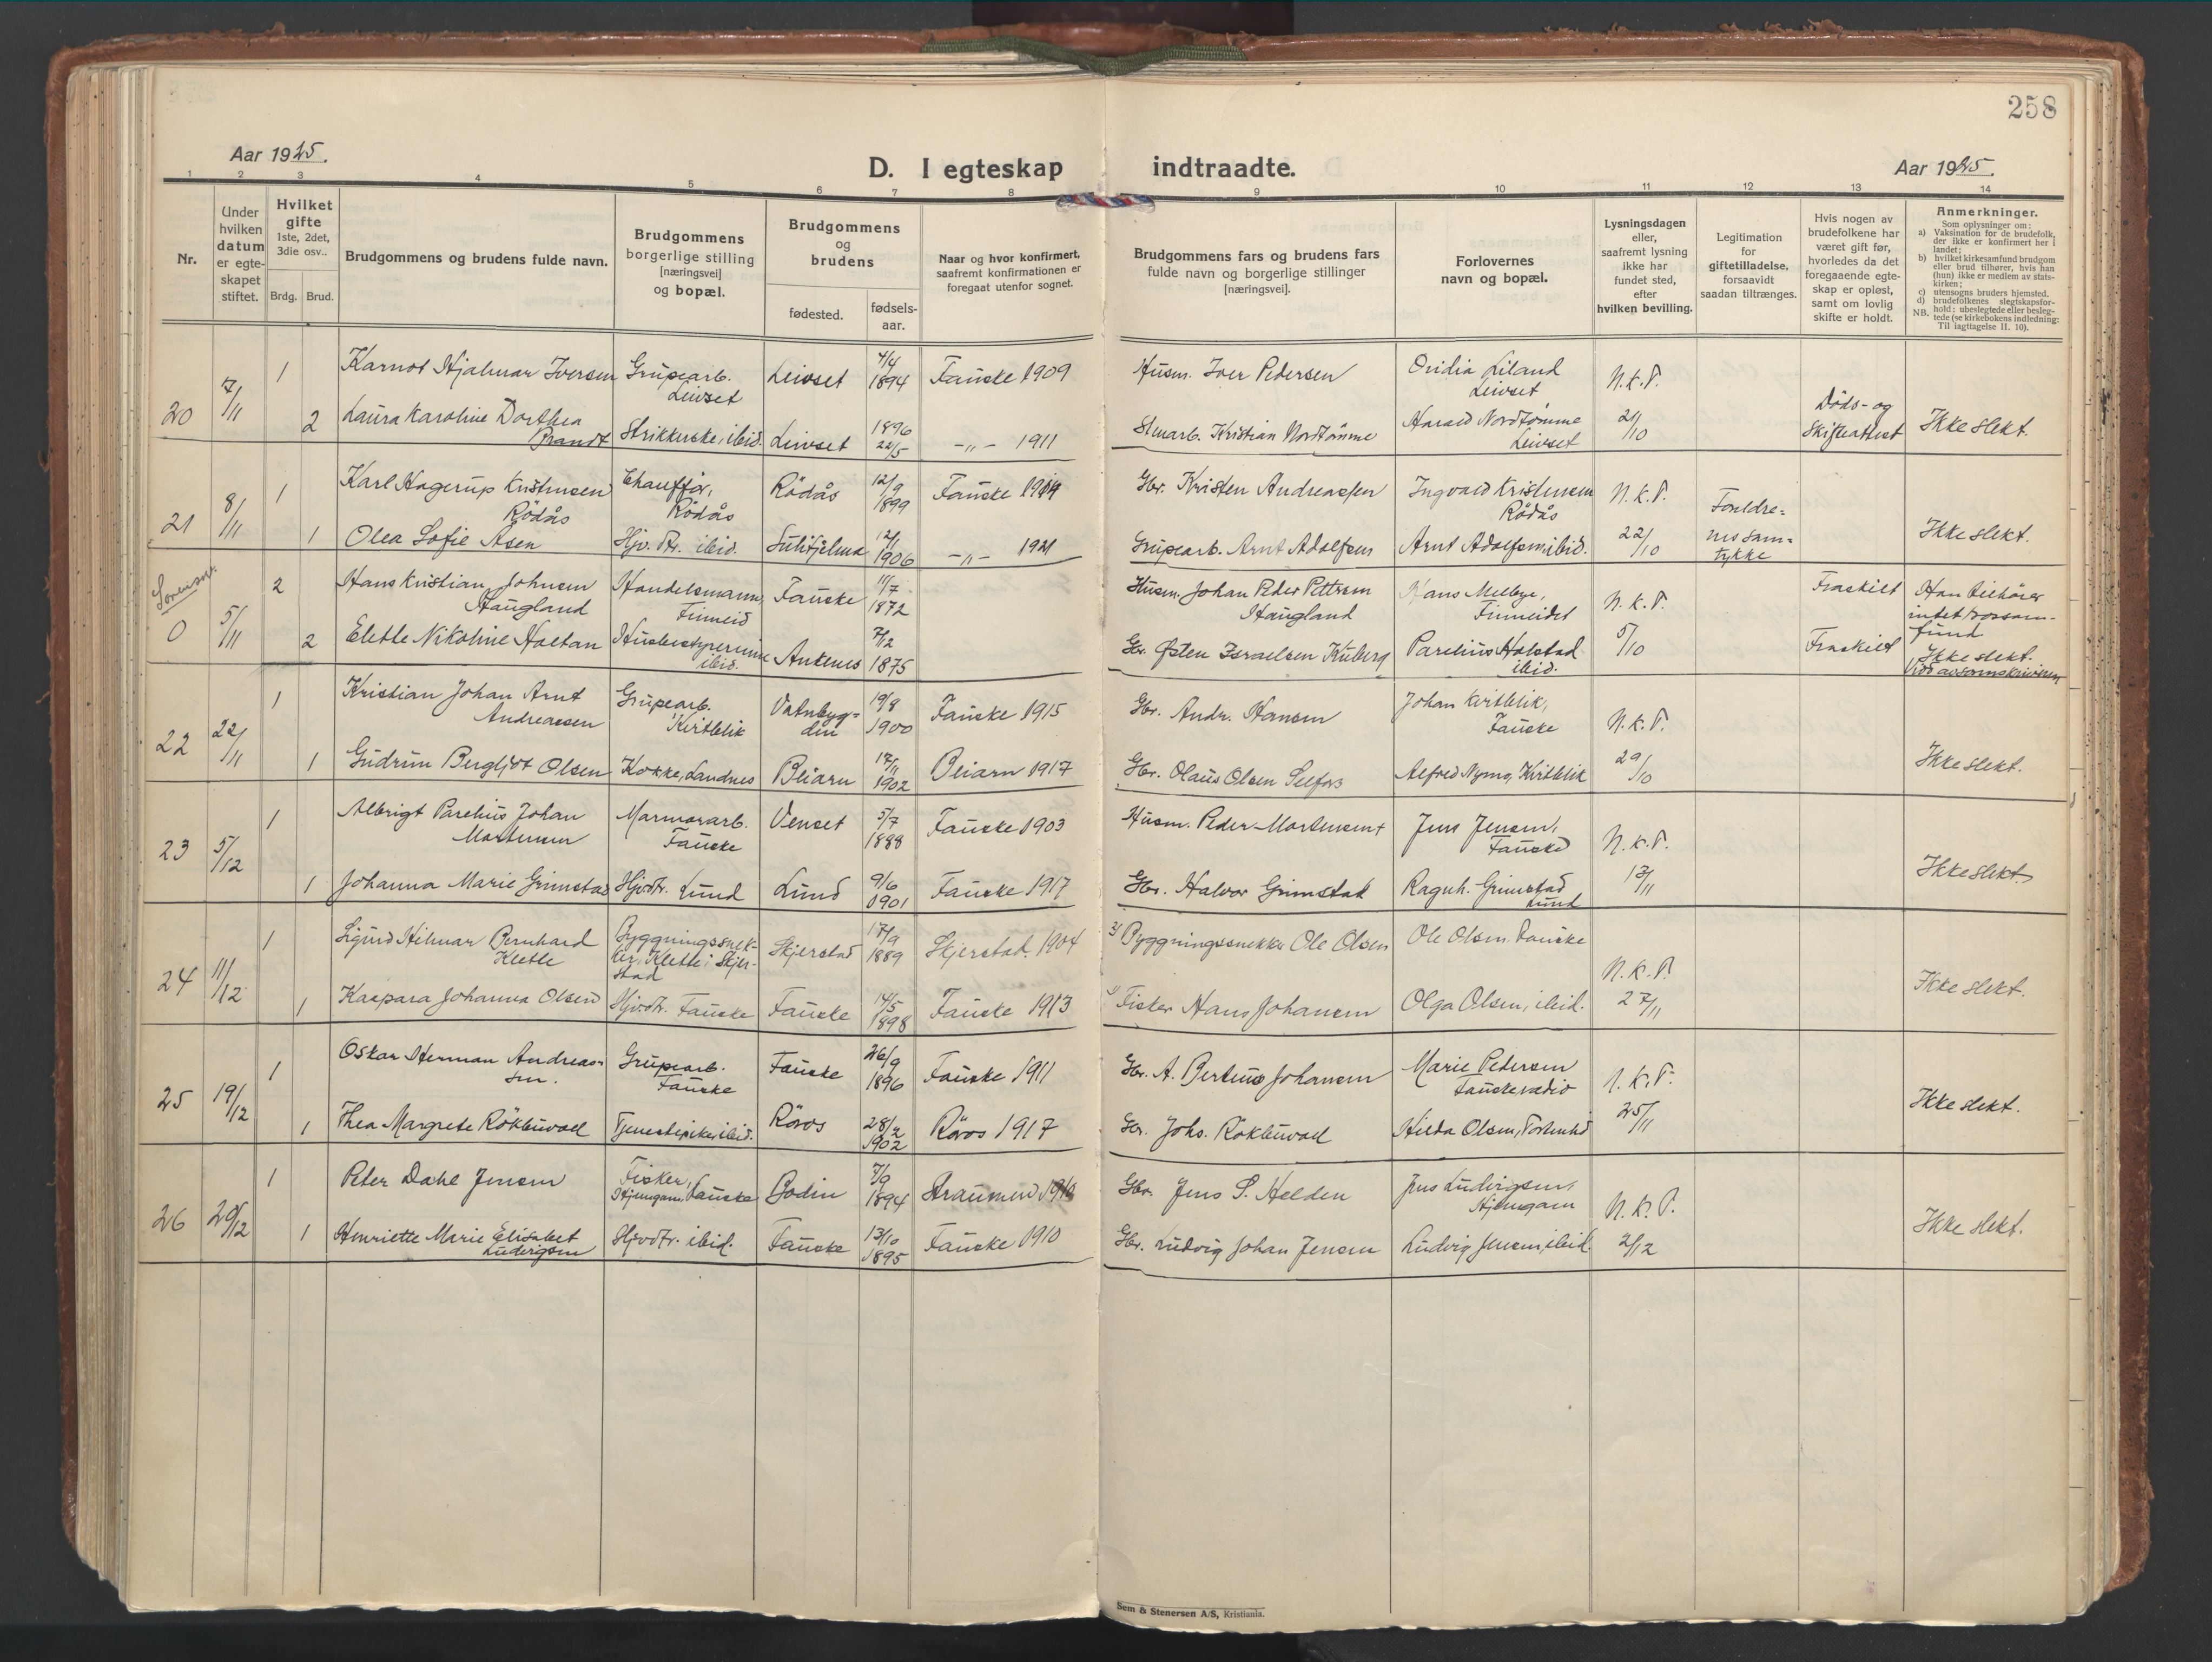 258
Aar 1925.
D. I egteskap indtraadte.
Aar 1925.
1 2 3 4 5 6 7 8 9 10 11 12 13 14
Nr.
Under hvilken datum er egte-skapet stiftet.
Hvilket gifte
1ste, 2det, 3die osv..
Brdg. Brud.
Brudgommens og brudens fulde navn.
Brudgommens borgerlige stilling [næringsvei] og bopæl.
Brudgommens og brudens
fødested.
fødsels-aar.
Naar og hvor konfirmert, saafremt konfirmationen er foregaat utenfor sognet.
Brudgommens fars og brudens fars fulde navn og borgerlige stillinger [næringsvei].
Forlovernes navn og bopæl.
Lysningsdagen eller, saafremt lysning ikke har fundet sted, efter hvilken bevilling.
Legitimation for giftetilladelse, forsaavidt saadan tiltrænges.
Hvis nogen av brudefolkene har været gift før, hvorledes da det foregaaende egte-skap er opløst, samt om lovlig skifte er holdt.
Anmerkninger.
Som oplysninger om:
a) Vaksination for de brudefolk, der ikke er konfirmert her i landet;
b) hvilket kirkesamfund brudgom eller brud tilhører, hvis han (hun) ikke er medlem av stats-kirken;
c) utensogns bruders hjemsted.
d) brudefolkenes slegtskapsfor-hold: ubeslegtede eller besleg-tede (se kirkebokens indledning:
NB. Til iagttagelse II. 10).
20 7/11 1 Karnot Hjalmar Iversen Grupearb. Leivset Leivset 4/4 1894 Fauske 1909 Husm. Iver Pedersen Ovidia Liland Leivset N.K.P.
2 Laura Karoline Dorthea Brandt Strikkerske, ibid. Leivset 1896 22/5 -"- 1911 Kristian Nordtømme Harald Nordtømme Leivset 21/10 Døds- og Skifteattest Ikke slekt.
21 8/11 1 Karl Hagerup Kristensen Rödås Chauffør, Rödås Rödås 12/9 1899 Fauske 1914 Gbr. Kristen Andreassen Ingvald Kristensen Rödås N.K.P.
1 Olea Sofie Åsen Hjv. Dtr. ibid. Sulitjelma 12/1 1906 -"- 1921 Grupearb. Arnt Adolfsen Arnt Adolfsen ibid. 22/10 Foreldre=nes sam=tykke Ikke slekt.
0 5/11 2 Hans Kristian Johnsen Haugland Handelsmann, Finneid Fauske 11/7 1872 Husm. Johan Peder Pettersen Haugland Hans Melbye, Finneidet N.K.P. Fraskilt Han tilhører intet trossam-fund
2 Elette Nikoline Holtan Husbestyrerinne ibid. Ankenes 7/2 1875 Gbr. Østen Israelsen Kuberg Parelius Holstad ibid. 5/10 Fraskilt Ikke slekt.
22 22/11 1 Kristian Johan Arnt Andreassen Grupearb. Kirtblik Vatnbyg-den 19/8 1900 Fauske 1915 Gbr. Andr. Hansen Johan Kirtblik, Fauske N.K.P.
1 Gudrun Bergljot Olsen Kokke, Landnes Beiarn 17/11 1902 Beiarn 1917 Gbr. Olaus Olsen Selfors Alfred Nymo, Kirtblik 29/10 Ikke slekt.
23 5/12 1 Albrigt Parelius Johan Mortensen Marmorarb. Fauske Venset 5/7 1888 Fauske 1903 Husm. Peder Mortensen Jens Jensen, Fauske N.K.P.
1 Johanna Marie Grimstad Hjv. dtr. Lund Lund 9/6 1901 Fauske 1917 Gbr. Halvor Grimstad Ragnh. Grimstad Lund 13/11 Ikke slekt
24 11/12 1 Sigurd Hilmar Bernhard Klette Byggningssnek-ker, Klette i Skjer-stad Skjerstad 17/9 1889 Skjerstad 1904 2) Byggningssnekker Ole Olsen Ole Olsen Fauske N.K.P.
1 Kaspara Johanna Olsen Hjv. dtr. Fauske Fauske 14/5 1898 Fauske 1913 1) Fisker Hans Johansen Olga Olsen, ibid. 27/11 Ikke slekt.
25 19/12 1 Oskar Herman Andreas-sen. Grupearb. Fauske Fauske 26/9 1896 Fauske 1911 Gbr. A. Bertius Johansen Marie Pedersen Fauske radio N.K.P.
1 Thea Margrete Rökkuvoll Tjenestepike ibid. Röros 28/2 1902 Röros 1917 Gbr. Johs. Rökkuvoll Hilda Olsen, 25/11 Ikke slekt.
26 20/12 1 Peter Dahl Jensen Fisker, Hjemgam, Fauske Bodin 7/9 1894 Straumen Gbr. Jens S. Helden Jens Ludvigsen, Hjemgam N.K.P.
1 Henriette Marie Elisabet Ludvigsen Hjv. dtr. ibid. Fauske 13/10 1895 Fauske 1910 Gbr. Ludvig Johan Jensen Ludvig Jensen, ibid. 2/12 Ikke slekt.
Sem & Stenersen A/S, Kristiania.